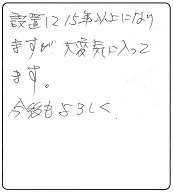 設置して15年以上になり
ますが大変気に入って
ます。
今後もよろしく